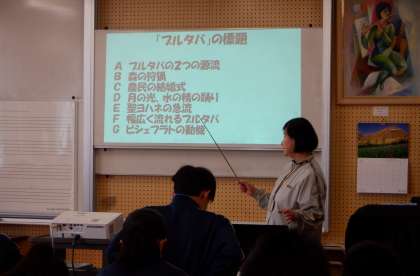 「ブルタバ」の標題
A ブルタバの2つの源流
B 森の狩猟
C 農民の結婚式
D 月の光、水の精の踊り
E 聖ヨハネの急流
F 幅広く流れるブルタバ
G ビシェフラトの動機